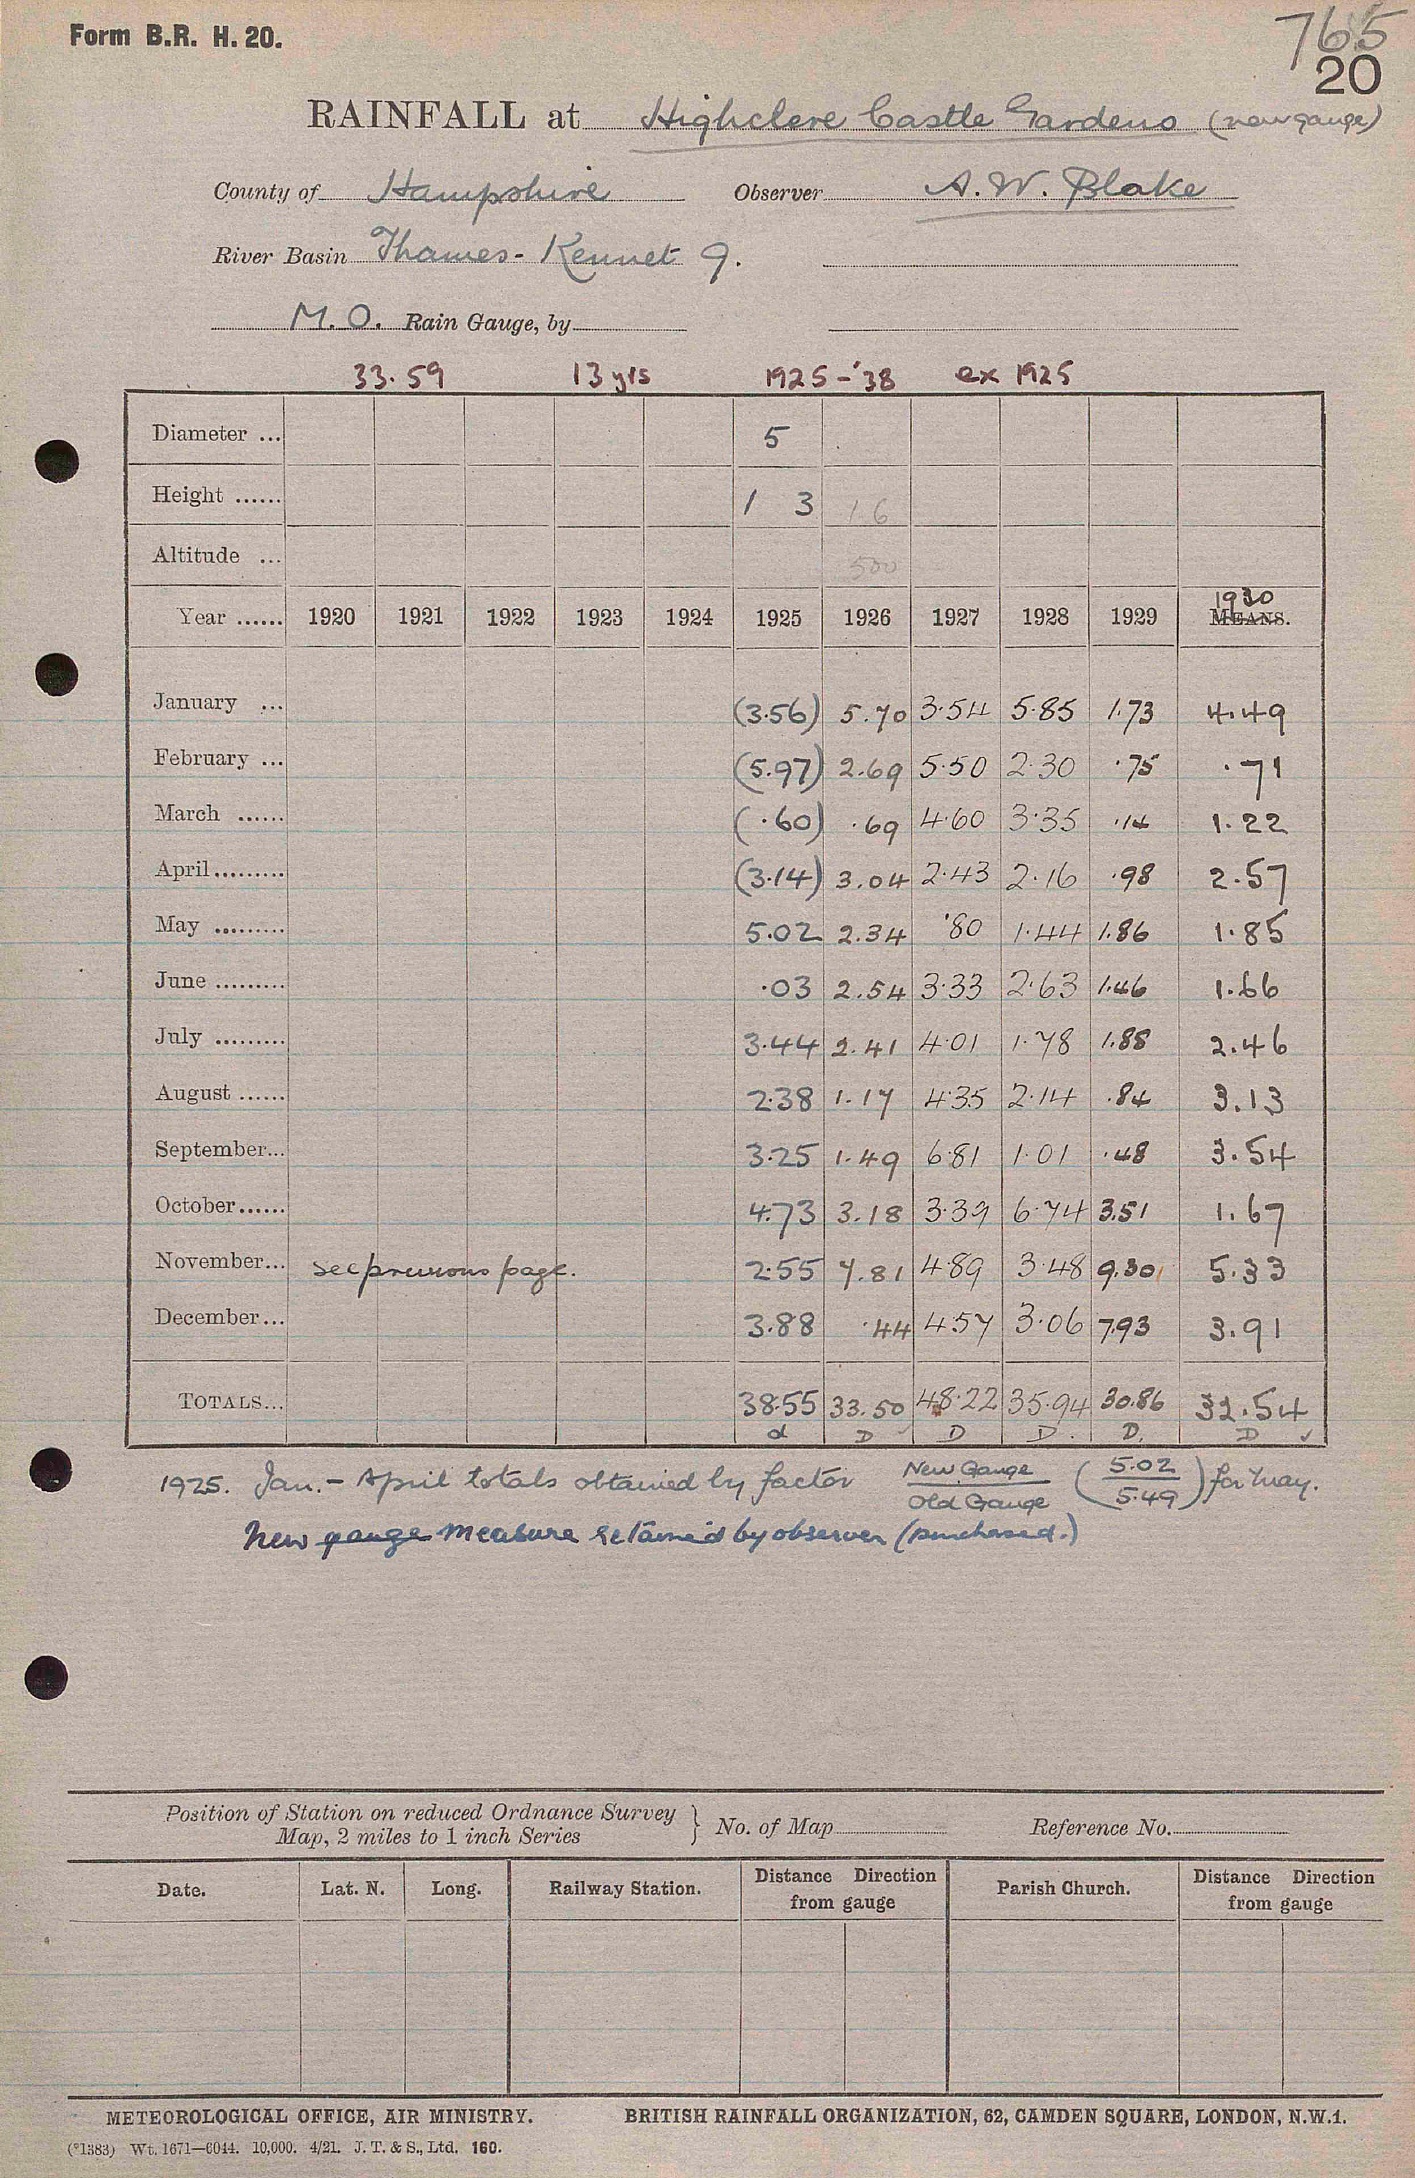 Form B.R. H. 20.
765
20
RAINFALL at Highclere Castle Gardens (new gauge)
County of Hampshire Observer A. W. Blake
River Basin Thames - Kennet 9.
M. O. Rain Gauge, by
33.59 13 yrs 1925-'38 ex 1925
Diameter ... 5
Height ...... 1 3 1 6
Altitude ... 500
1930
Year ...... 1920 1921 1922 1923 1924 1925 1926 1927 1928 1929 MEANS.
January ... (3.56) 5.70 3.54 5.85 1.73 4.49
February ... (5.97) 2.69 5.50 2.30 .75 .71
March ...... (.60) .69 4.60 3.35 .14 1.22
April ......... (3.14) 3.04 2.43 2.16 .98 2.57
May ......... 5.02 2.34 .80 1.44 1.86 1.85
June ......... .03 2.54 3.33 2.63 1.46 1.66
July ......... 3.44 2.41 4.01 1.78 1.88 2.46
August ...... 2.38 1.17 4.35 2.14 .84 3.13
September... 3.25 1.49 6.81 1.01 .48 3.54
October...... 4.73 3.18 3.39 6.74 3.51 1.67
November... see previous page. 2.55 7.81 4.89 3.48 9.30 5.33
December... 3.88 .44 4.57 3.06 7.93 3.91
TOTALS... 38.55 33.50 48.22 35.94 30.86 32.54
d D D D. D. D ✓
1925. Jan. - April totals obtained by factor New Gauge / Old Gauge (5.02 / 5.49) for May.
New gauge measure retained by observer (purchased.)
Position of Station on reduced Ordnance Survey
Map, 2 miles to 1 inch Series } No. of Map Reference No.
Date. Lat. N. Long. Railway Station. Distance Direction from gauge Parish Church. Distance Direction from gauge
METEOROLOGICAL OFFICE, AIR MINISTRY. BRITISH RAINFALL ORGANIZATION, 62, CAMDEN SQUARE, LONDON, N.W.1.
(*1383) Wt. 1671—6044. 10,000. 4/21. J. T. & S., Ltd. 160.